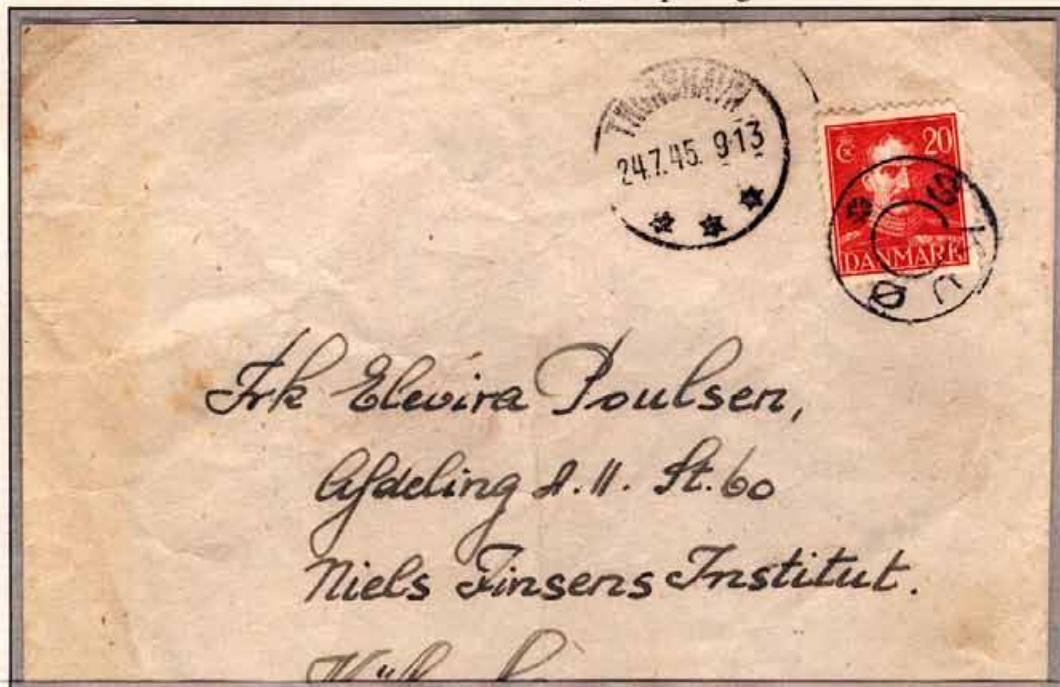 THORSHAVN
24.7.45. 9-13
20
DANMARK
SKUØ
Frk Elevira Poulsen,
Afdeling
St. 60
Niels Finsens Institut.